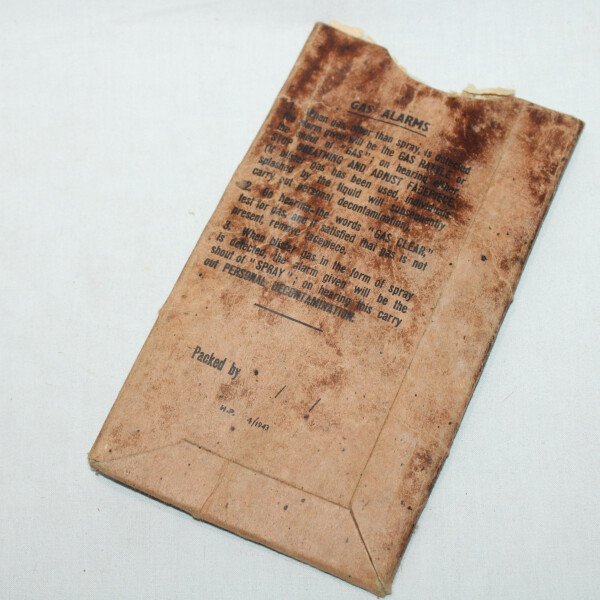 GAS ALARMS
1. When gas, other than spray, is detected
the alarm given will be the GAS RATTLE or
the shout of "GAS"; on hearing either
STOP BREATHING AND ADJUST FACEPIECE.
If blister gas has been used, individuals
splashed by the liquid will subsequently
carry out personal decontamination.
2. On hearing the words "GAS CLEAR,"
test for gas, and if satisfied that gas is not
present, remove facepiece.
3. When blister gas in the form of spray
is detected, the alarm given will be the
shout of "SPRAY"; on hearing this carry
out PERSONAL DECONTAMINATION.
Packed by
H.P. 4/1943